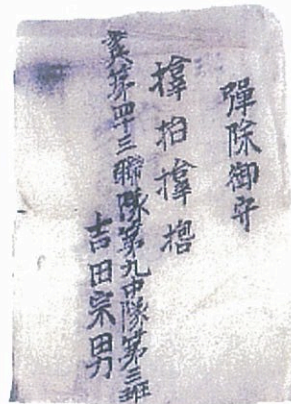 彈除御守
歩兵第四十三聯隊第九中隊第三班
吉田宗男